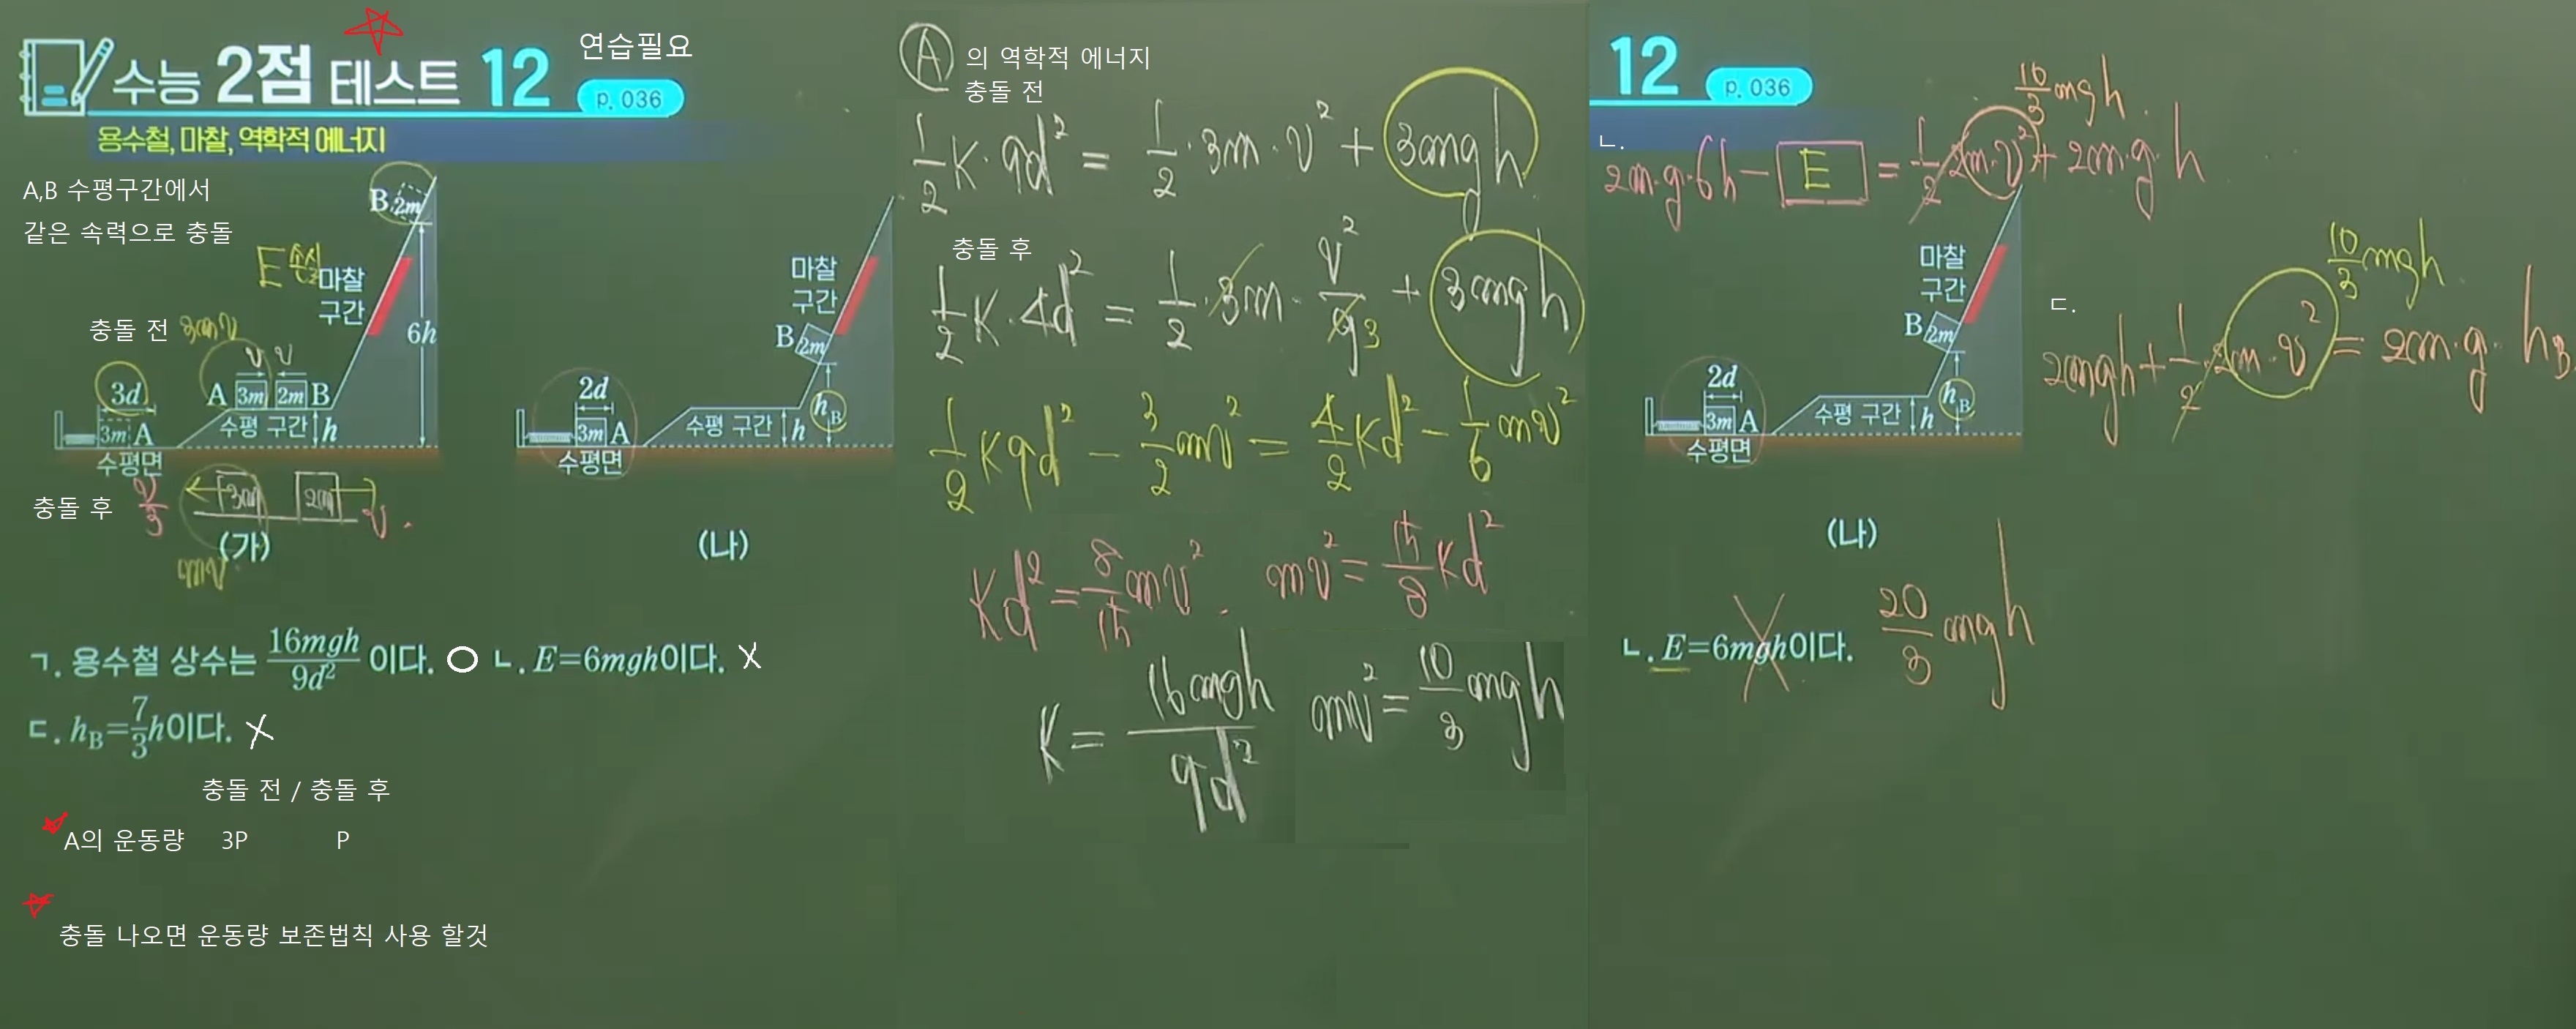 수능 2점 테스트 12
연습필요
p. 036
용수철, 마찰, 역학적 에너지
A,B 수평구간에서
같은 속력으로 충돌
B 2m
E손실
마찰
구간
6h
충돌 전 3mv
v v
3d
A 3m 2m B
3m A
수평 구간 h
수평면
충돌 후 v/3 3m 2m v
(가)
mv
마찰
구간
B 2m
2d
hB
3m A
수평 구간 h
수평면
(나)
ㄱ. 용수철 상수는 16mgh/9d² 이다. O ㄴ. E=6mgh이다. X
ㄷ. hB=7/3h이다. X
충돌 전 / 충돌 후
A의 운동량 3P P
충돌 나오면 운동량 보존법칙 사용 할것
A 의 역학적 에너지
충돌 전
1/2 K·9d² = 1/2·3m·v² + 3mgh
충돌 후
1/2 K·4d² = 1/2·3m·v²/9 3 + 3mgh
1/2 K9d² - 3/2 mv² = 4/2 Kd² - 1/6 mv²
Kd² = 8/15 mv². mv² = 15/8 Kd²
K = 16mgh/9d² mv² = 10/3 mgh
12
p. 036
10/3 mgh.
ㄴ.
2m·g·6h - E = 1/2 2m·v² + 2m·g·h
마찰
구간
B 2m
2d
hB
3m A
수평 구간 h
수평면
(나)
10/3 mgh
ㄷ.
2mgh + 1/2·2m·v² = 2m·g·hB
ㄴ. E=6mgh이다. 20/3 mgh